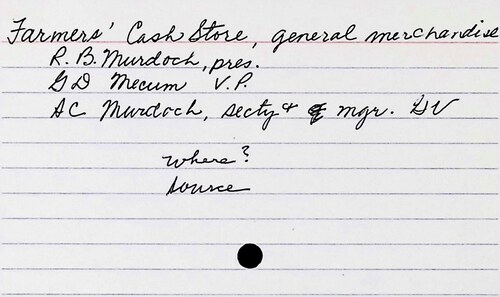 Farmers' Cash Store, general merchandise
R. B. Murdoch, pres.
GD Mecum V.P.
AC Murdoch, secty & mgr. GV
where?
source